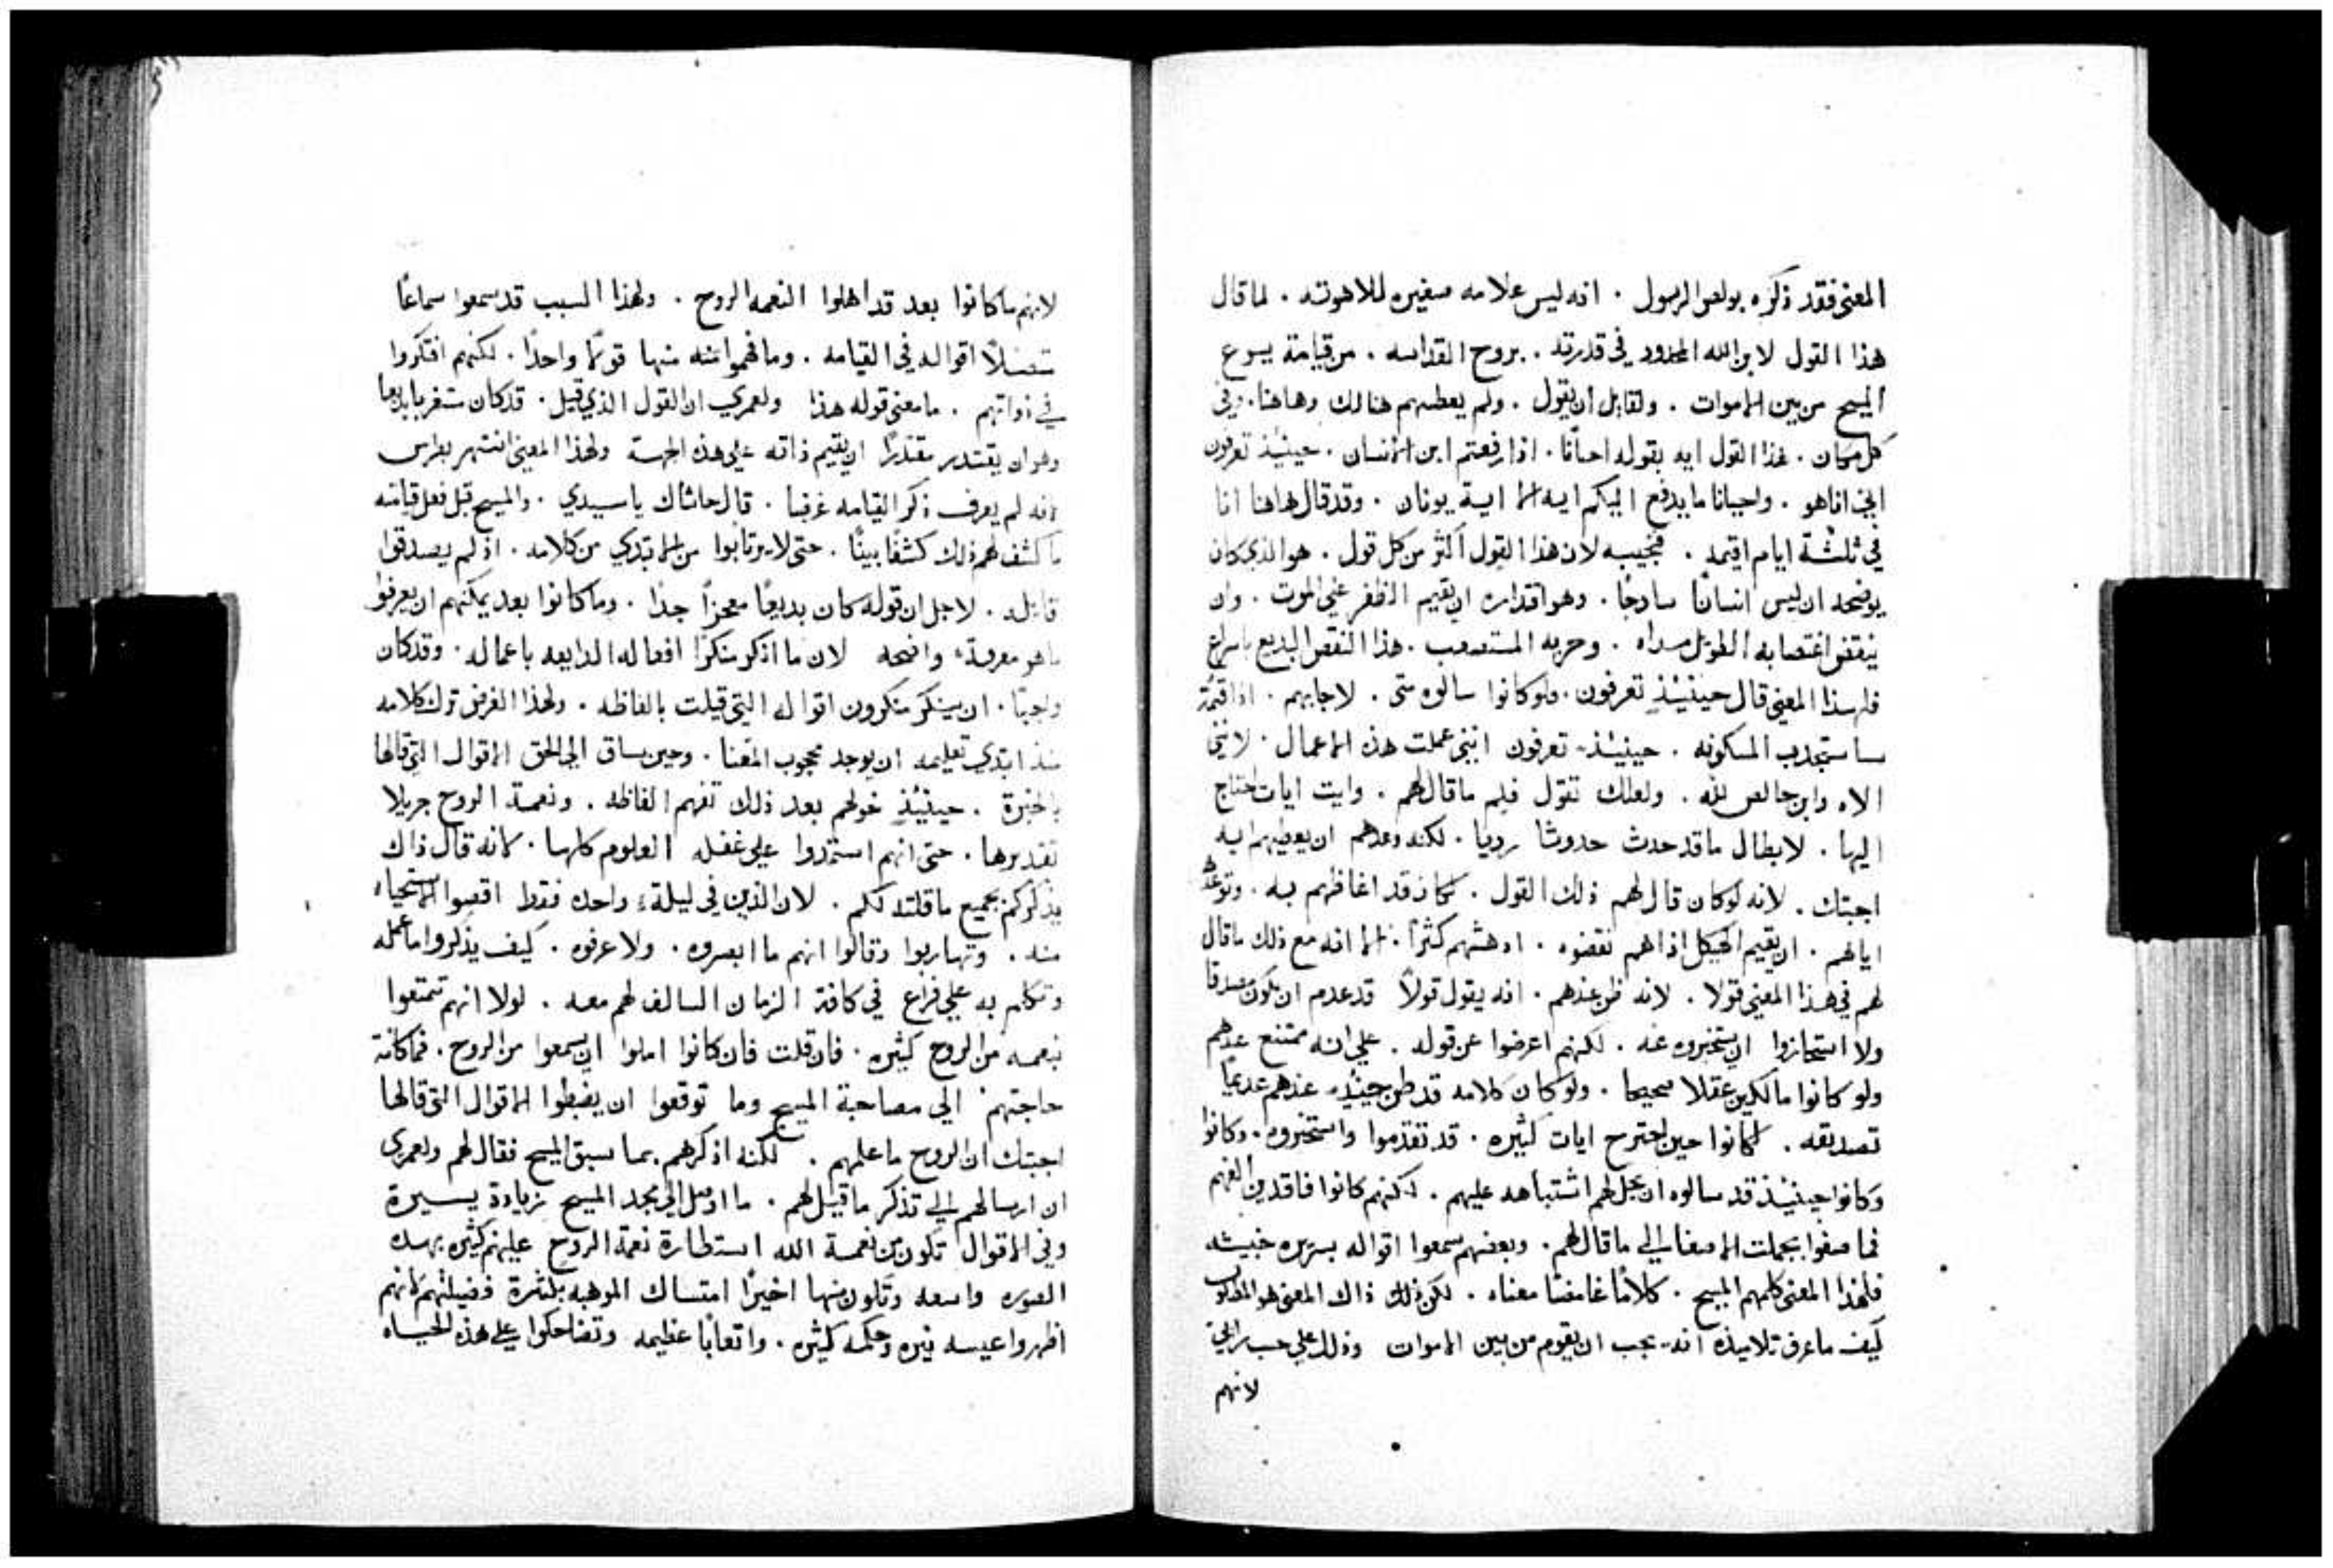 المعنى فقد ذكره بولص الرسول . انه ليس علامه صغيره للاهوته . لما قال
هذا القول لابن الله المحدود في قدرته . بروح القداسه . من قيامة يسوع
المسيح من بين الاموات . ولقايل أن يقول . ولم يعطيهم هنالك وهاهنا . وفي
كل مكان . هذا القول ايه بقوله احيانًا . اذا رفعتم ابن الانسان . حينيئذ تعرفون
اني اناهو . واحيانا ما يدفع اليكم ايه الا اية يونان . وقد قال هاهنا انا
في ثلثة ايام اقيمه . فنجيبه لان هذا القول أكثر من كل قول . هو الذي كان
يوضحه ان ليس انسانًا سادجًا . وهو اقتداره ان يقيم الظفر علي الموت . وان
ينقض اغتصابه الطويل مداه . وحربه المستصعب . هذا النقض البديع باسراع
فلهذا المعني قال حينيئذٍ تعرفون . ولو كانوا سالوه متى . لاجابهم . اذا قمت
ساستجدب المسكونه . حينيئذ تعرفون انني عملت هذه الاعمال . لانني
الاه وابن خالص لله . ولعلك تقول فلم ما قال لهم . وايت ايات احتاج
اليها . لابطال ما قد حدث حدوثا رديا . لكنه وعدهم ان يعطيهم ايه
اجبتك . لانه لو كان قال لهم ذلك القول . لكان قد اغاظهم به . وتوعده
اياهم . ان يقيم الهيكل اذا هم نقضوه . ادهشهم كثرًا . الا انه مع ذلك ما قال
لهم في هذا المعني قولا . لانه ظن عندهم . انه يقول قولاً قد عدم ان يكون مصدقا
ولا استجازوا ان يستخبروه عنه . لكنهم اعرضوا عن قوله . علي انه ممتنع عندهم
ولو كانوا مالكين عقلا صحيحا . ولو كان كلامه قد ظن حينيذٍ عندهم عدميًا
تصديقه . لكانوا حين اجترح ايات كثيره . قد تقدموا واستخبروه . وكانوا
وكانوا حينيئذ قد سالوه ان يحل لهم اشتباهه عليهم . لكنهم كانوا فاقدين الفهم
فما صغوا بجملت الاصغاء الي ما قال لهم . وبعضهم سمعوا اقواله بسريره خبيثه
فلهذا المعنى كلمهم المسيح . كلامًا غامضا معناه . لكن ذلك ذاك المعنى هو المطلوب
كيف ما عرف تلاميذه انه يجب ان يقوم من بين الاموات وذلك علي حسب رائي
لانهم
لانهم ما كانوا بعد قد اهلوا النعمه الروح . ولهذا السبب قد سمعوا سماعًا
متصلاً اقواله في القيامه . وما فهموا منه منها قولاً واحدًا . لكنهم افتكروا
في ذواتهم . ما معنى قوله هذا ولعمري ان القول الذي قيل . قد كان مستغربا بديعا
وهو ان يقتدر مقتدرًا ان يقيم ذاته علي هذه الجهة ولهذا المعني انتهر بطرس
انه لم يعرف ذكر القيامه غرضا . قال حاشاك يا سيدي . والمسيح قبل فعل قيامته
ما كشف لهم ذلك كشفًا بينًا . حتى لا يرتابوا من المبتدي من كلامه . اذ لم يصدقوا
قايله . لاجل ان قوله كان بديعًا معجزاً جدًا . وما كانوا بعد يمكنهم ان يعرفوا
ما هو معرفة واضحه لان ما اذكر منكرًا افعاله الدايعه باعماله . وقد كان
واجبًا . ان ينكر منكرون اقواله التي قيلت بالفاظه . ولهذا الغرض ترك كلامه
منذ ابتدي تعليمه ان يوجد محجوب المعنا . وحين ساق الي الحق الاقوال التي قالها
بالخبرة . حينيئذٍ خولهم بعد ذلك تفهم الفاظه . ونعمة الروح جزيلا
تقديرها . حتى انهم استمدوا علي غفله العلوم كلها . لانه قال ذاك
يذكركم بجميع ما قلته لكم . لان الذين في ليلة واحده فقط اقصوا الاستحياء
منه . وتهاربوا وقالوا انهم ما ابصروه . ولا عرفوه . كيف يذكروا ما عمله
وتكلم به علي فراغ في كافة الزمان السالف لهم معه . لولا انهم تمتعوا
بنعمه من الروح كثيره . فان قلت فان كانوا املوا ان يسمعوا من الروح . فما كانت
حاجتهم الي مصاحبة المسيح وما توقعوا ان يضبطوا الاقوال التي قالها
اجبتك ان الروح ما علمهم . لكنه اذكرهم بما سبق المسيح فقال لهم ولعمري
ان ارسالهم الي تذكر ما قيل لهم . ما اوصل الي مجد المسيح زيادة يسيرة
وفي الاقوال تكون من نعمة الله استطارة نعمة الروح عليهم كثيره بهذه
الصوره واسعه وتكون منها اخيرًا امتساك الموهبه بكثرة فضيلتهم لانهم
اظهروا عيسه نيره وحكمه كثيره . واتعابًا عظيمه وتضاحكوا علي هذه الحياه